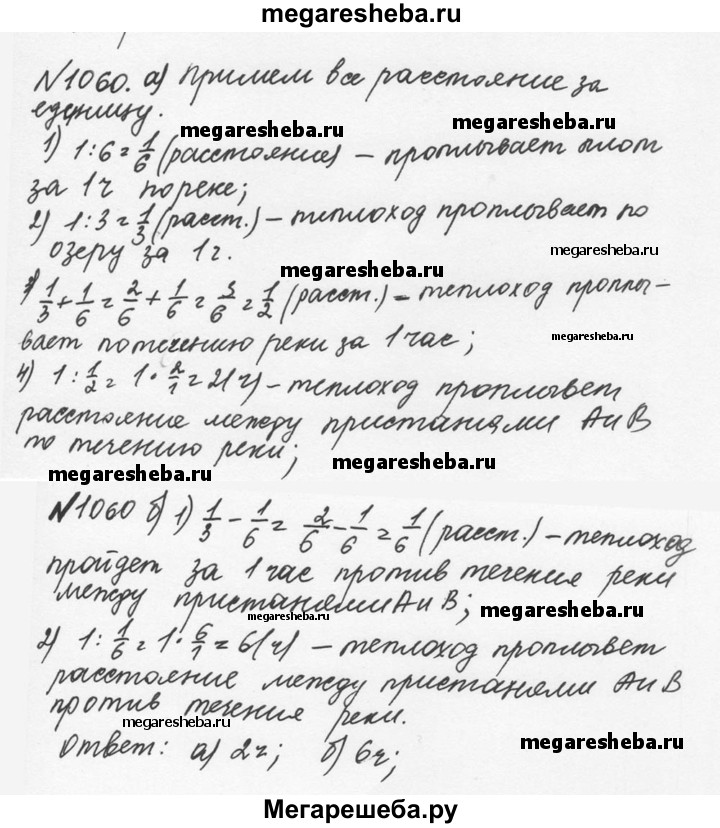 megaresheba.ru
№1060. а) Примем все расстояние за
единицу.
megaresheba.ru megaresheba.ru
1) 1:6=1/6 (расстояние) – проплывает плот
за 1ч по реке;
2) 1:3=1/3 (расст.) – теплоход проплывает по
озеру за 1 г.
megaresheba.ru
megaresheba.ru
3) 1/3+1/6=2/6+1/6=3/6=1/2 (расст.) – теплоход проплы-
вает по течению реки за 1 час;
megaresheba.ru
4) 1:1/2=1·2/1=2(ч) – теплоход проплывет
расстояние между пристанями А и В
по течению реки;
megaresheba.ru megaresheba.ru
№1060 б) 1) 1/3-1/6=2/6-1/6=1/6 (расст.) – теплоход
пройдет за 1 час против течения реки
между пристанями А и В;
megaresheba.ru
2) 1:1/6=1·6/1=6(ч) – теплоход проплывет
расстояние между пристанями А и В
против течения реки.
megaresheba.ru
Ответ: а) 2ч; б) 6ч;
megaresheba.ru
Мегарешеба.ру